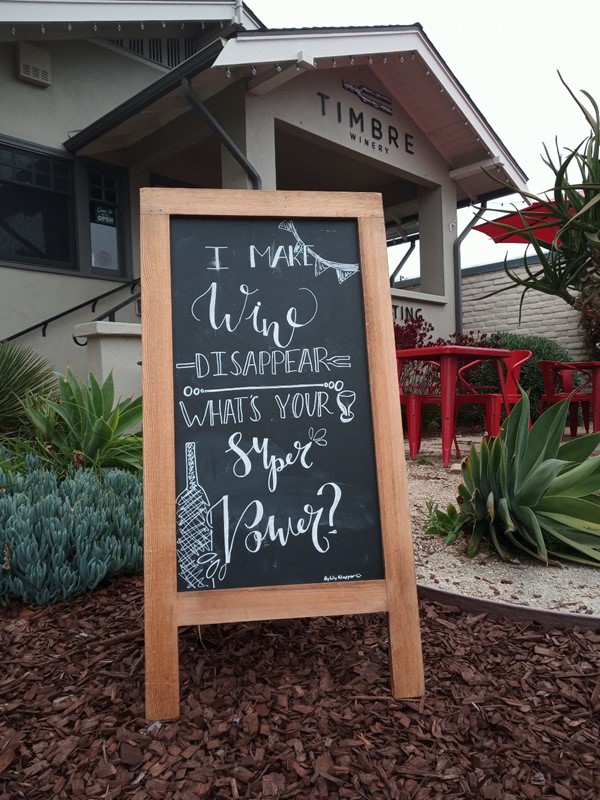 TIMBRE
WINERY
OPEN
TING
I MAKE
Wine
DISAPPEAR
WHAT'S YOUR
Super
Power?